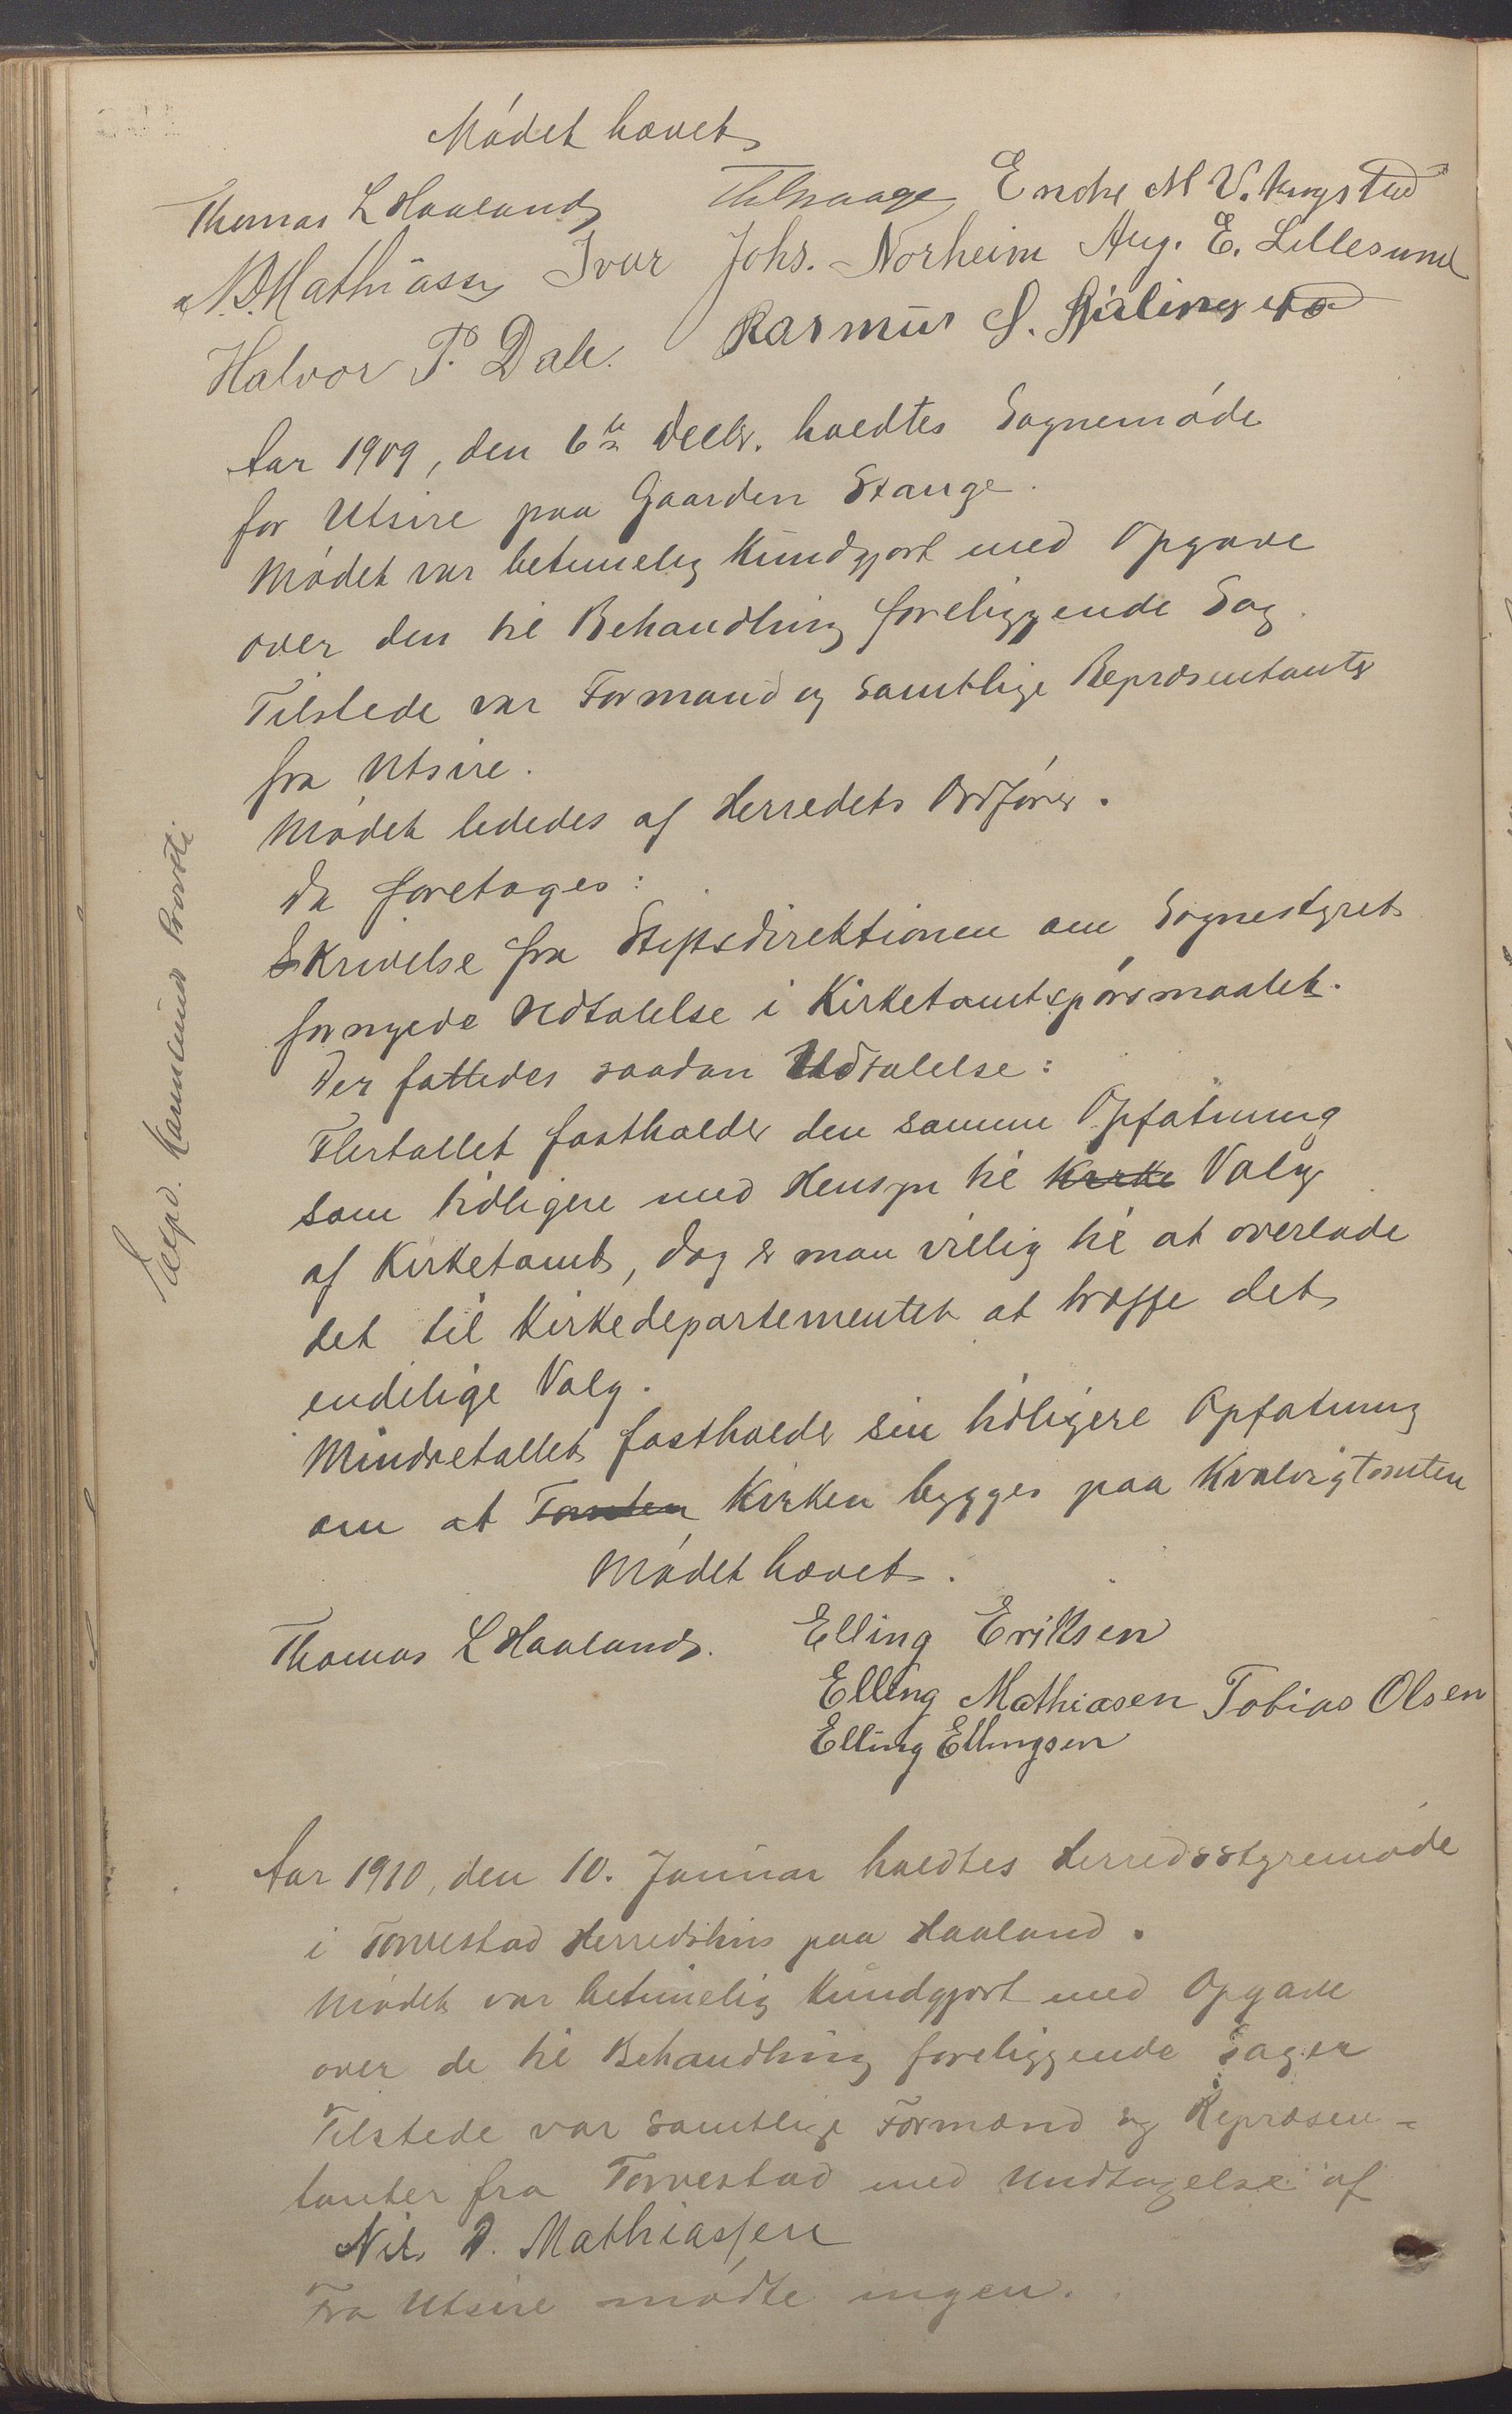 Mødet hævet
Thomas L Haaland Endre M Vikingstad
N. D. Mathiassen Ivar Johs. Norheim Aug. E. Lillesund
Halvor P. Dale. Rasmus S.
Aar 1909, den 6te Decbr. holdtes Sognemøde
for Utsire paa Gaarden Stange.
Mødet var betimelig kundgjort med Opgave
over den til Behandling foreliggende Sag.
Tilstede var Formand og samtlige Repræsentanter
fra Utsire.
Mødet lededes af Herredets Ordfører.
Da foretoges:
Skrivelse fra Stiftsdirektionen om Sognestyrets
fornyede Udtalelse i Kirketomtspørsmaalet.
Der fattedes saadan Udtalelse:
Flertallet fastholder den samme Opfatning
som tidligere med Hensyn til Kirke Valg
af Kirketomt, dog er man villig til at overlade
det til Kirkedepartementet at træffe det
endelige Valg.
Mindretallet fastholder sin tidligere Opfatning
om at Tomten Kirken bygges paa Kvalvigtomten
Mødet hævet.
Thomas L Haaland. Elling Eriksen
Elling Mathiasen Tobias Olsen
Elling Ellingsen
Expd. Karmsund Provsti
Aar 1910, den 10. Januar holdtes Herredsstyremøde
i Torvestad Herredshus paa Haaland.
Mødet var betimelig kundgjort med Opgave
over de til Behandling foreliggende Sager
Tilstede var samtlige Formænd og Repræsen-
tanter fra Torvestad med Undtagelse af
Nils D. Mathiassen
Fra Utsire mødte ingen.